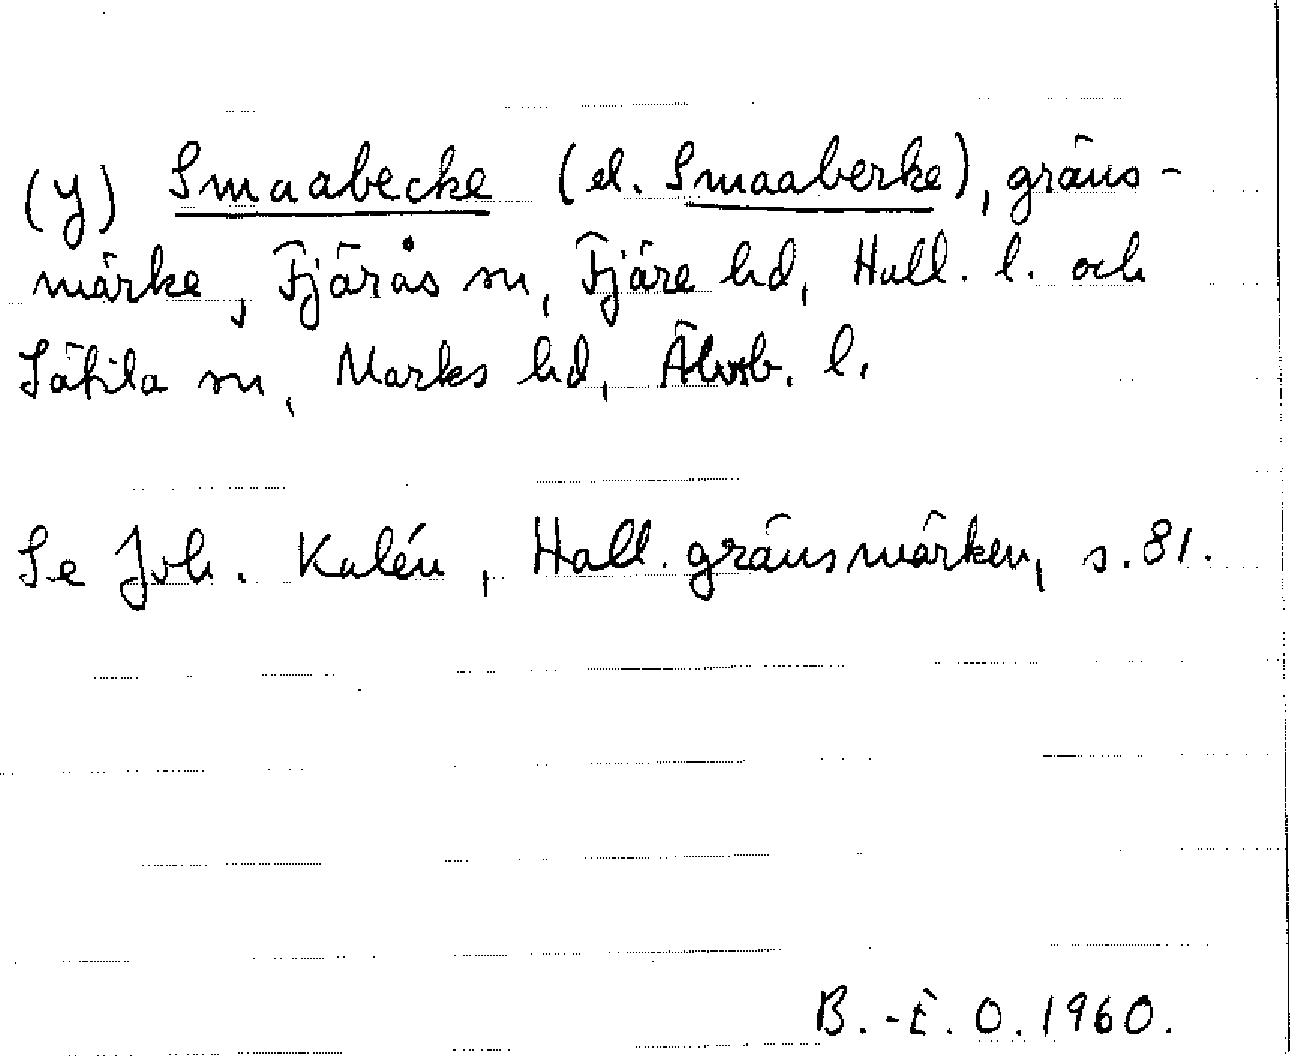 (y) Smaabecke (el. Smaaberke), gräns-
märke, Fjärås sn, Fjäre hd, Hall. l. och
Sätila sn, Marks hd, Älvsb. l.
Se Joh. Kalén, Hall. gränsmärken, s. 81.
B.-E. O. 1960.